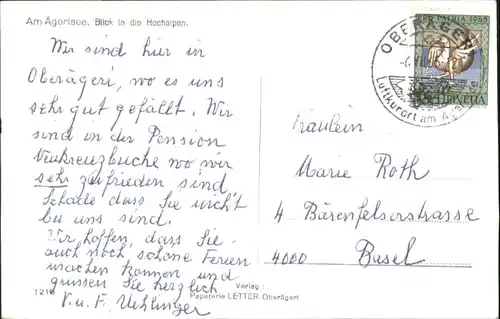 Am Ägerisee. Blick in die Hochalpen.
Wir sind hier in
Oberägeri, wo es uns
sehr gut gefällt. Wir
sind in der Pension
Neukreuzbuche wo wir
sehr zufrieden sind
Schade dass Sie nicht
bei uns sind.
Wir hoffen, dass Sie
auch noch schöne Ferien
machen können und
grüssen Sie herzlich
V. u. F. Uehlinger
PRO PATRIA 1965
HELVETIA
OBERÄGERI
Luftkurort am Ägerisee
Fräulein
Marie Roth
4 Bärenfelserstrasse
4000 Basel
Verlag:
Papeterie LETTER Oberägeri